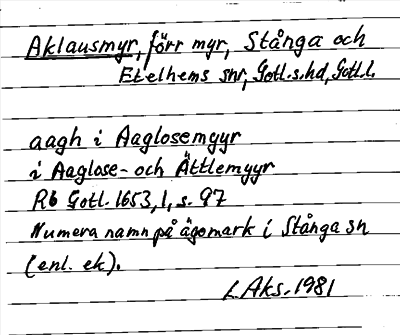 Aklausmyr, förr myr, Stånga och
Etelhems snr, Gotl. s. hd, Gotl. l.
aagh i Aaglosemyyr
i Aaglose- och Ättlemyyr
Rb Gotl. 1653, 1, s. 97
Numera namn på ägomark i Stånga sn
(enl. ek).
L Aks. 1981